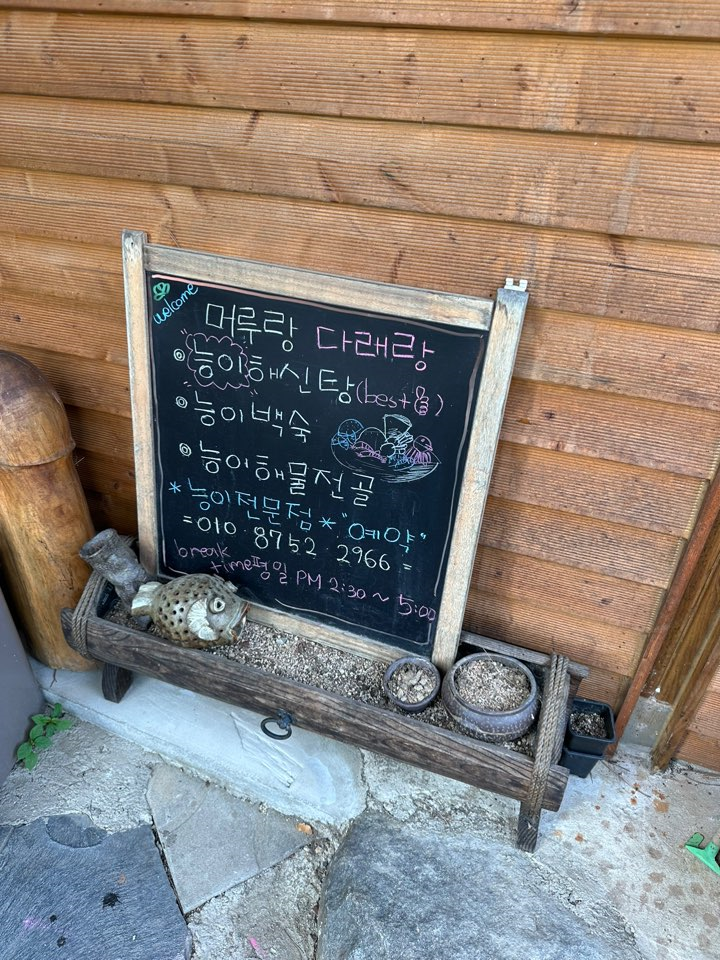 welcome
머루랑 다래랑
◎ 능이해신탕 (best)
◎ 능이백숙
◎ 능이해물전골
* 능이전문점 * "예약"
= 010. 8752. 2966 =
break
time평일 PM 2:30 ~ 5:00